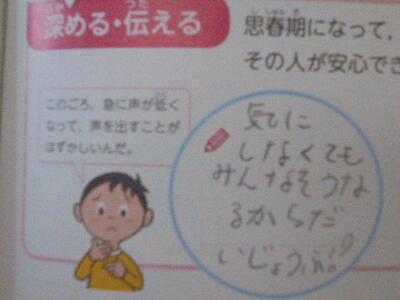 深める・伝える
思春期になって，
その人が安心でき
このごろ、急に声が低く
なって、声を出すことが
はずかしいんだ。
気に
しなくても
みんなそうな
るからだ
いじょうぶ。